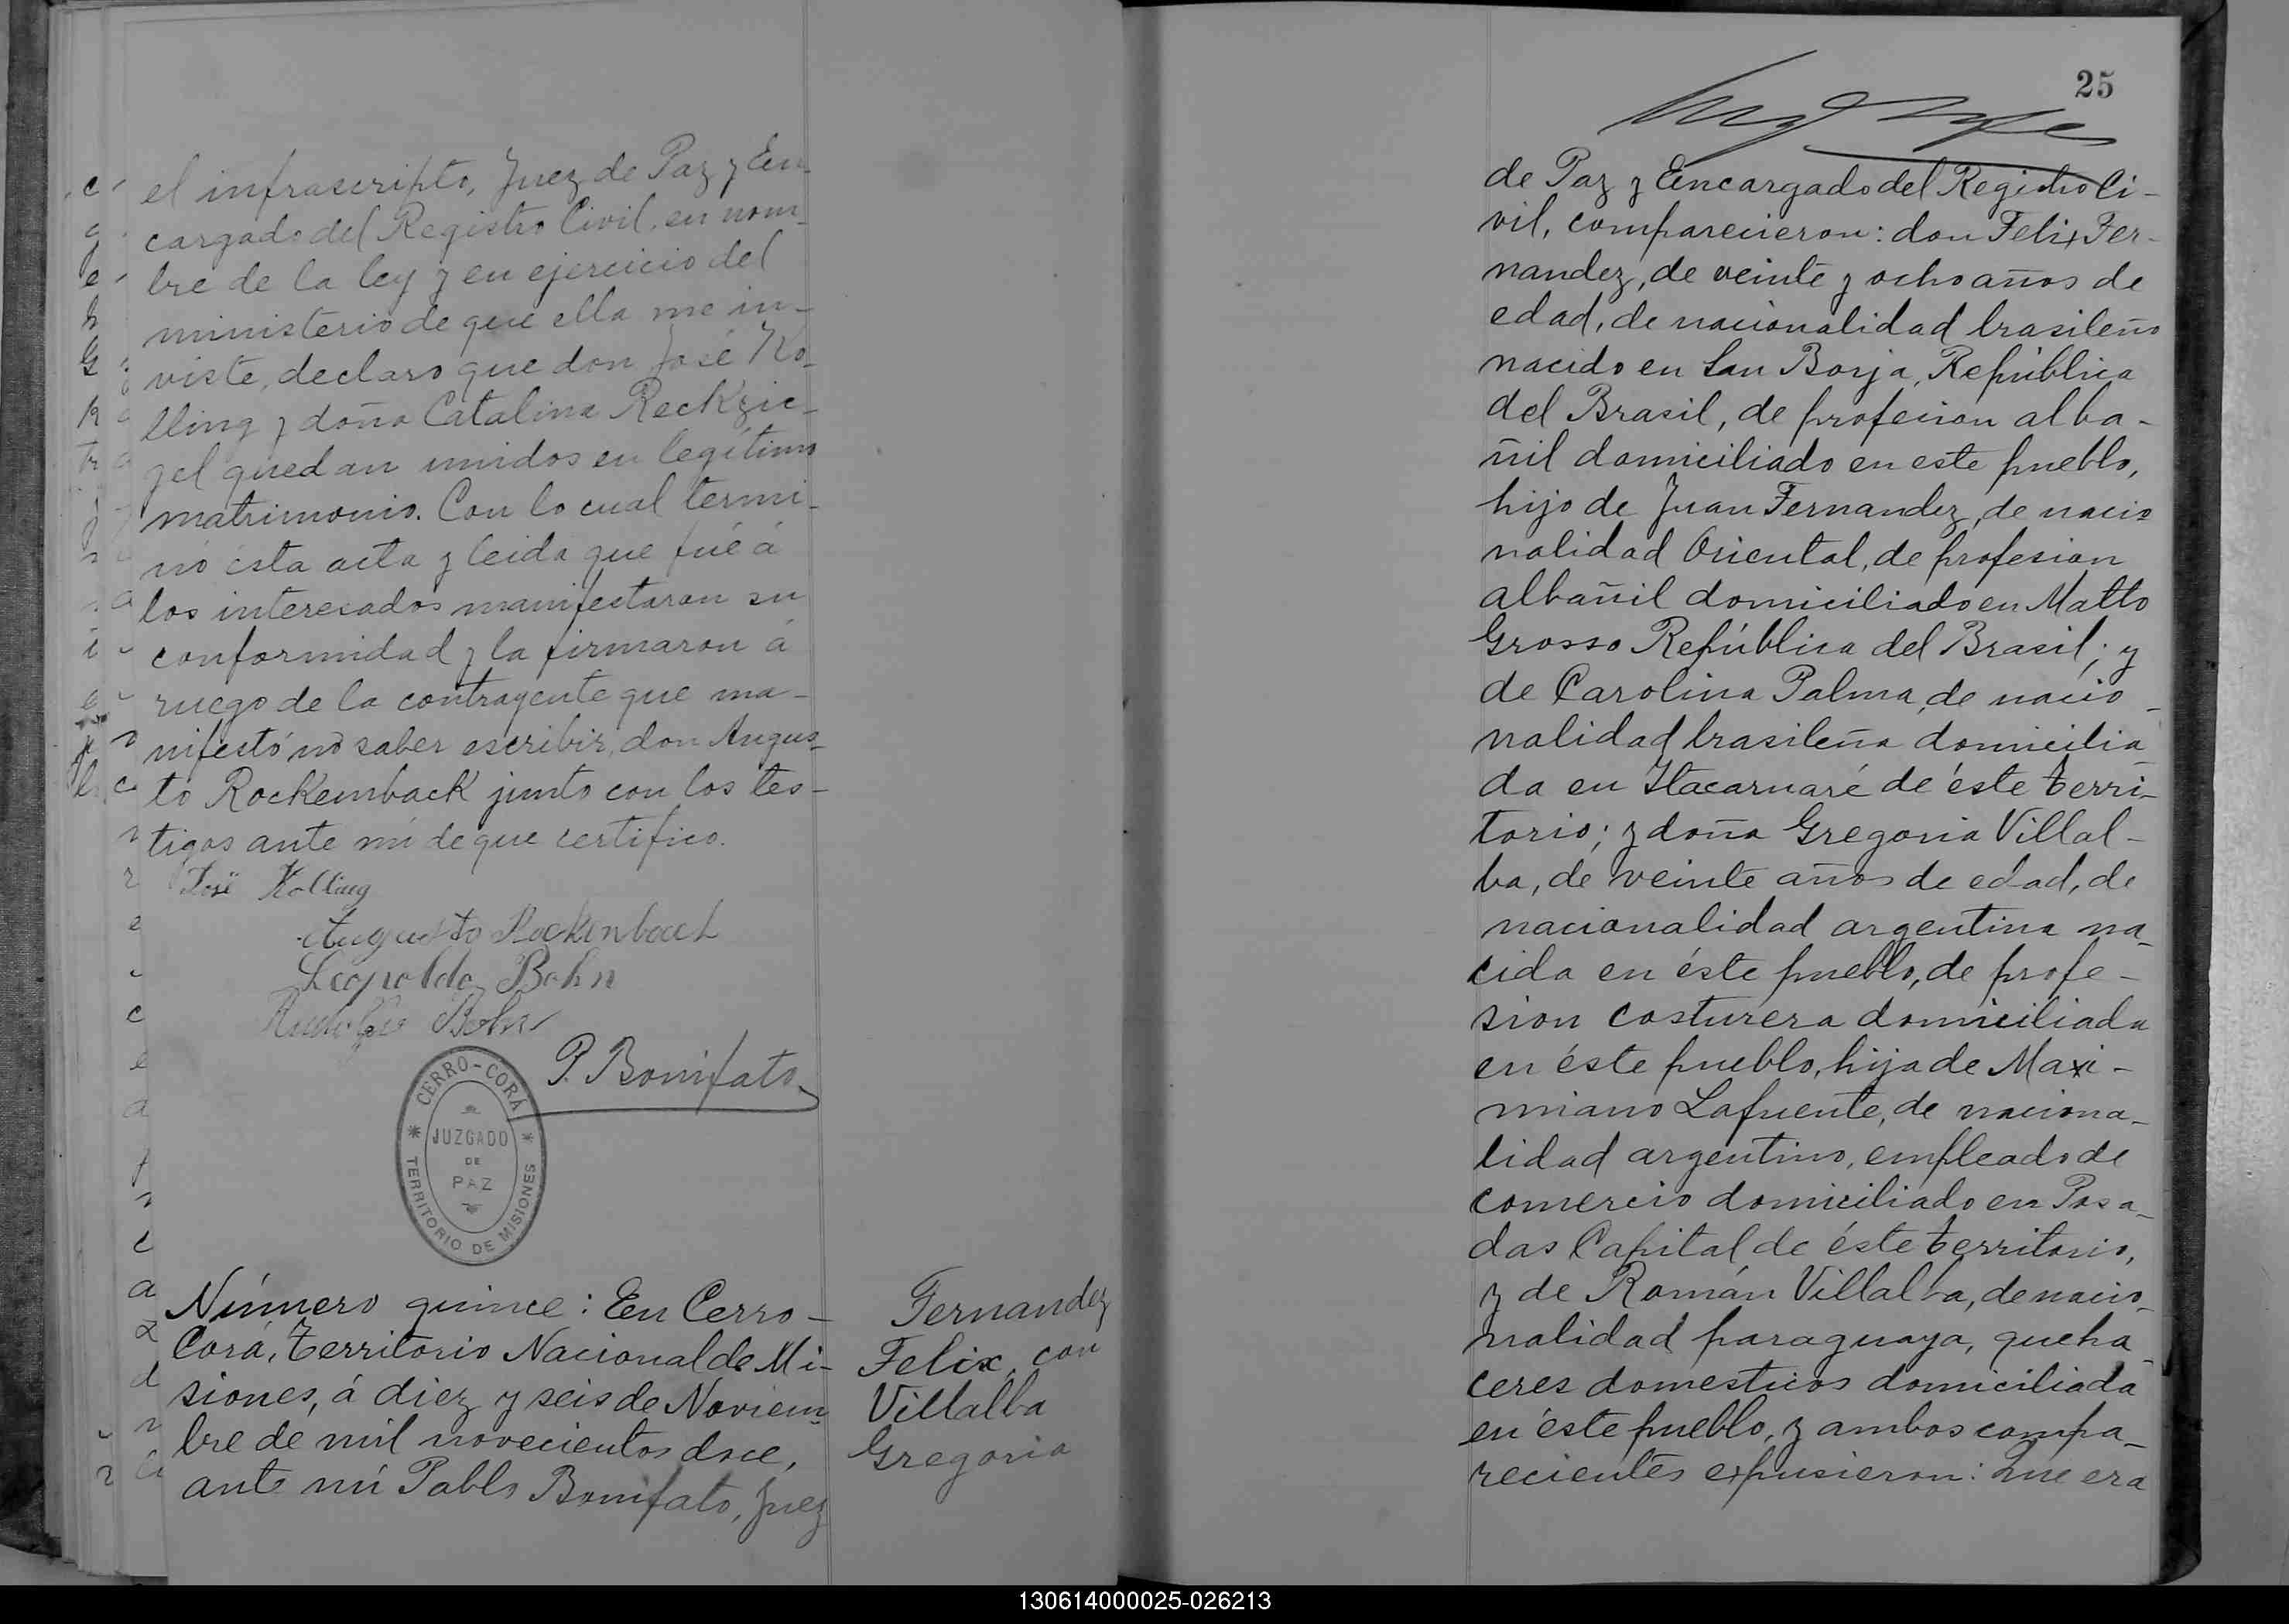 el infrascripto, Juez de Paz y En-
cargado del Registro Civil, en nom-
bre de la ley y en ejercicio del
ministerio de que ella me in-
viste, declaro que don José Ko-
lling y doña Catalina Reckzie-
gel quedan unidos en legítimo
matrimonio. Con lo cual termi-
nó ésta acta y leida que fué á
los interesados manifestaron su
conformidad y la firmaron á
ruego de la contrayente que ma-
nifestó no saber escribir, don Augus-
to Rockembach junto con los tes-
tigos ante mí de que certifico.
José Kolling
Augusto Rockenbach
Leopoldo Bohn
Rudolfo Bohn
P. Bonifato
CERRO-CORÁ
JUZGADO
DE
PAZ
TERRITORIO DE MISIONES
Número quince: En Cerro-
Corá, Territorio Nacional de Mi-
siones, á diez y seis de Noviem-
bre de mil novecientos doce,
ante mí Pablo Bonifato, Juez
Fernandez
Felix, con
Villalba
Gregoria
25
de Paz y Encargado del Registro Ci-
vil, comparecieron: don Felix Fer-
nandez, de veinte y ocho años de
edad, de nacionalidad brasileño
nacido en San Borja, República
del Brasil, de profecion alba-
ñil domiciliado en este pueblo,
hijo de Juan Fernandez, de nacio
nalidad Oriental, de profesion
albañil domiciliado en Matto
Grosso República del Brasil; y
de Carolina Palma, de nacio-
nalidad brasileña domicilia-
da en Itacaruaré de éste terri-
torio; y doña Gregoria Villal-
ba, de veinte años de edad, de
nacionalidad argentina na-
cida en éste pueblo, de profe-
sion costurera domiciliada
en éste pueblo, hija de Maxi-
miano Lafuente, de naciona-
lidad argentino, empleado de
comercio domiciliado en Posa-
das Capital de éste territorio,
y de Román Villalba, de nacio-
nalidad paraguaya, queha-
ceres domesticos domiciliada
en éste pueblo, y ambos compa-
recientes expusieron: Que era
130614000025-026213